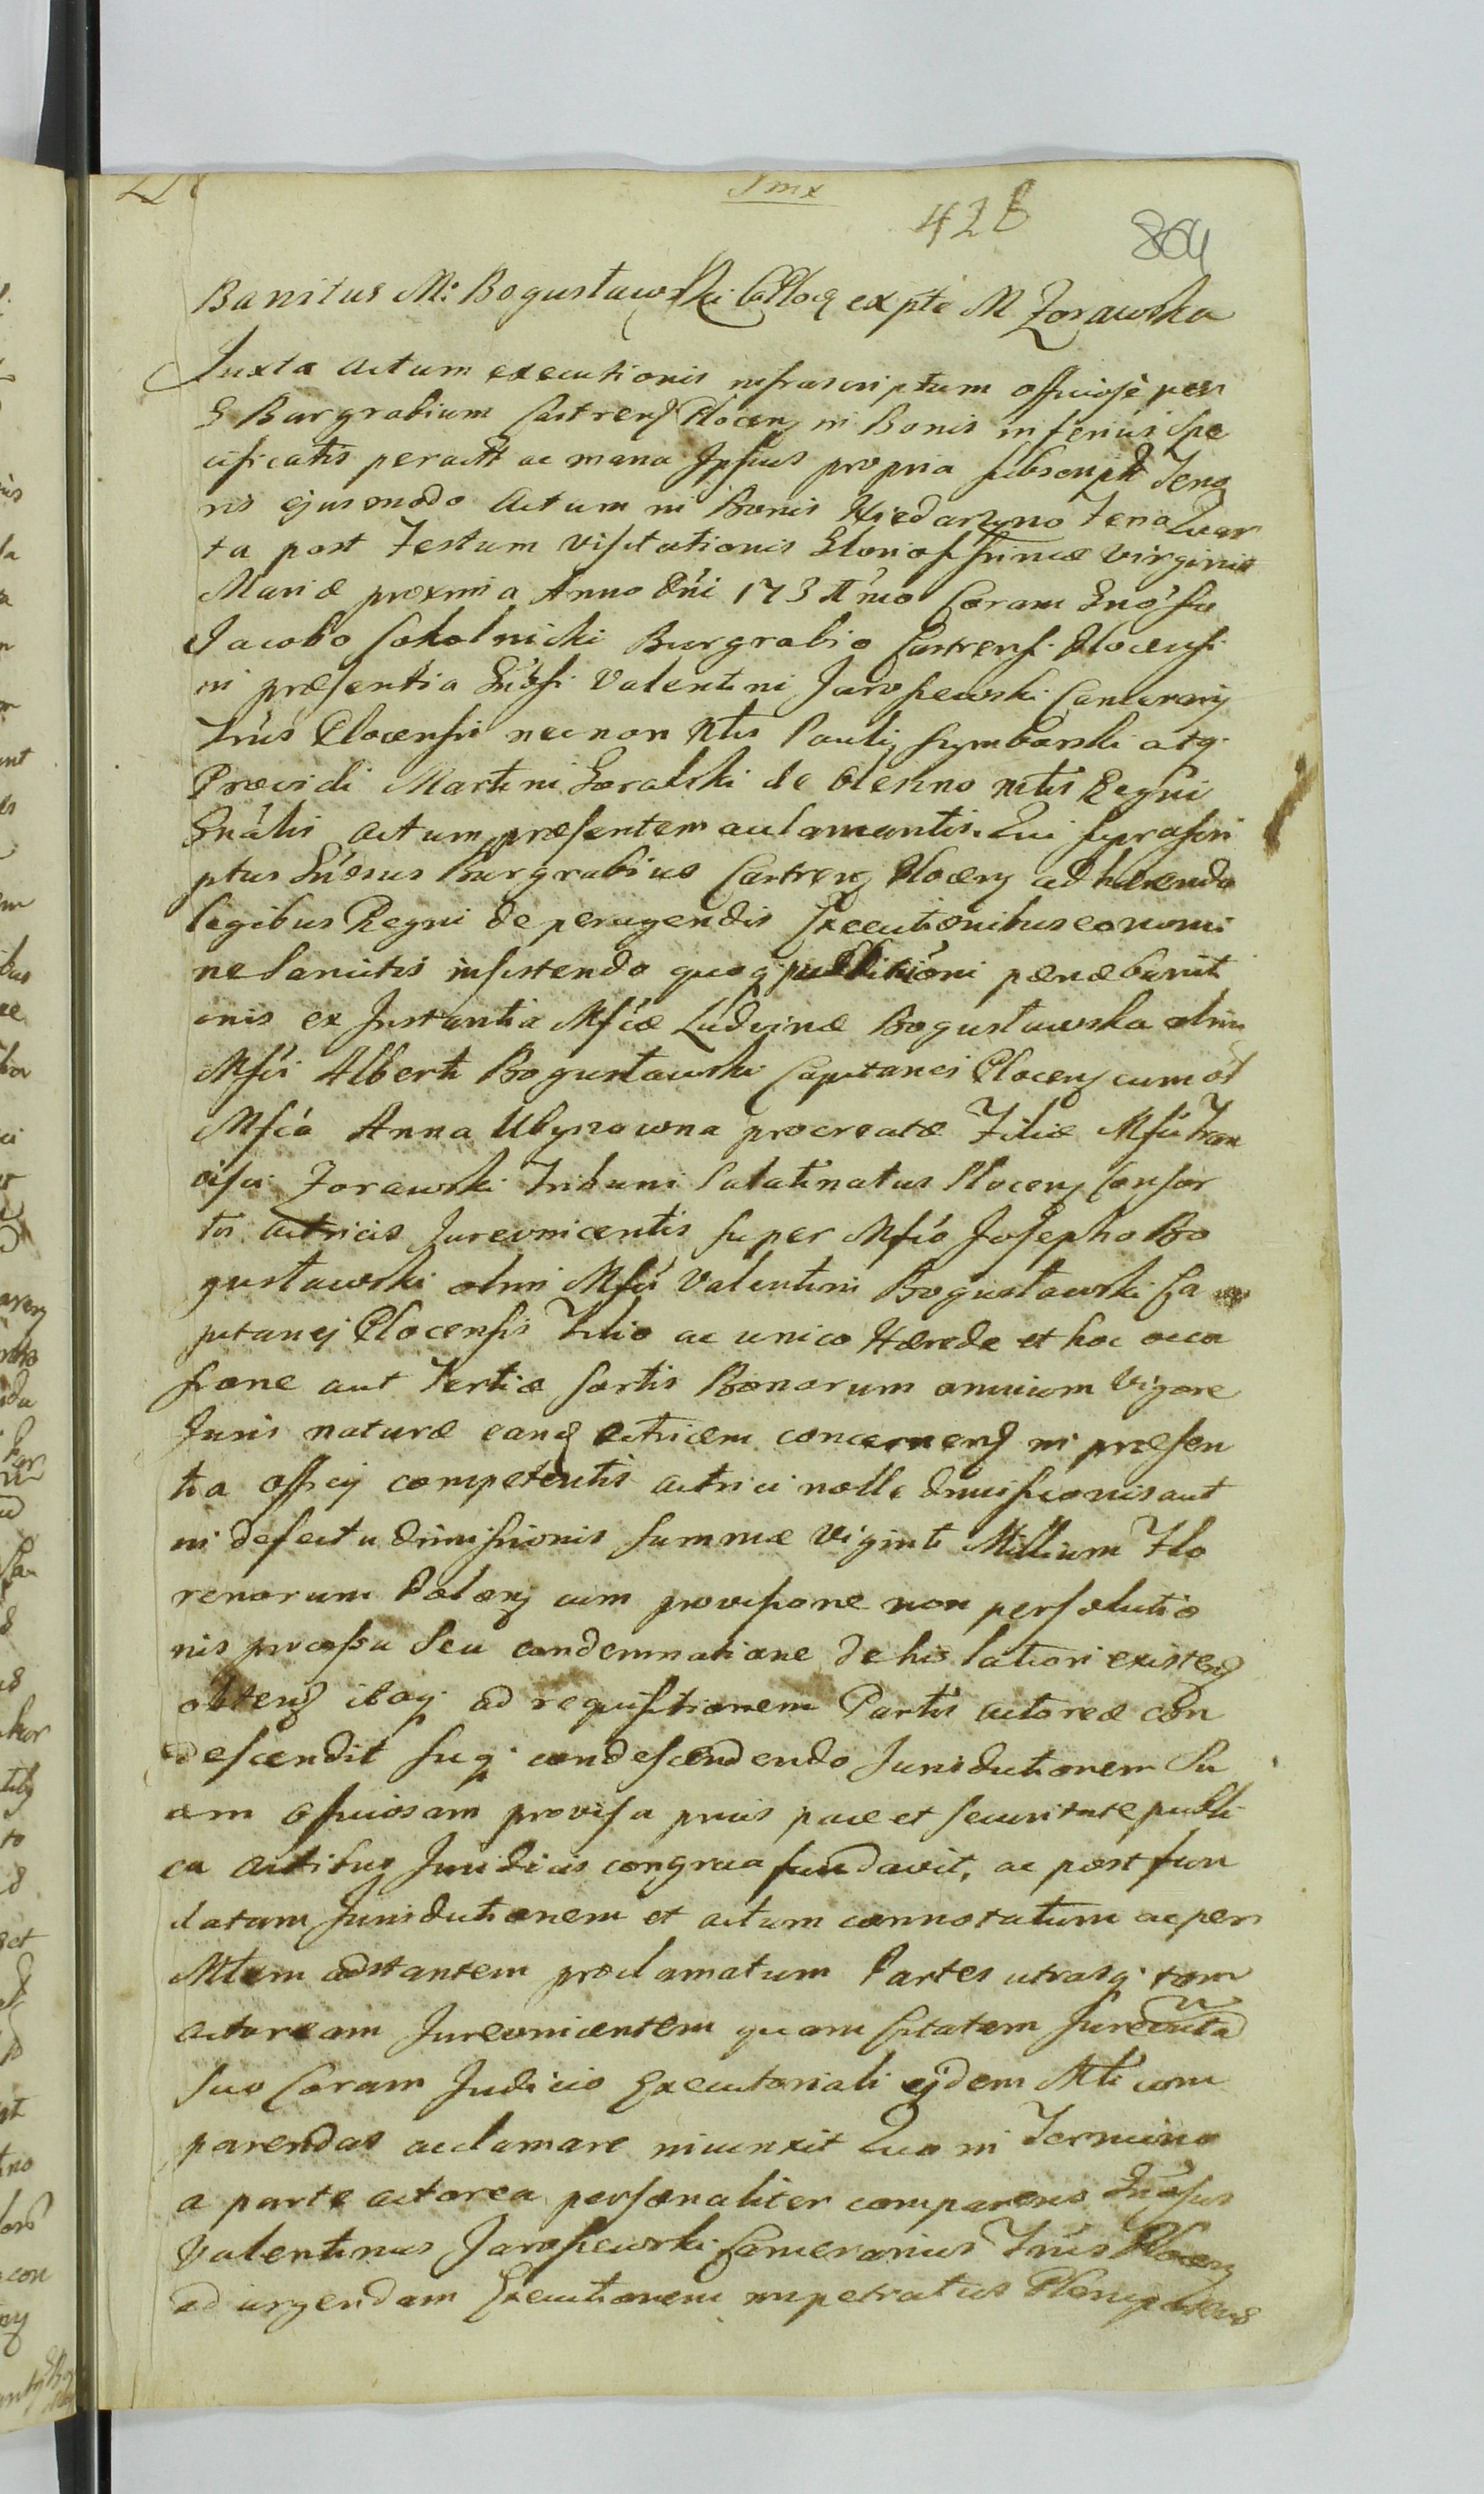 Smx
428
864
Banitus M: Bogusławski CPloc ex pte M Zorawska
Juxta actum executionis infrascriptum officiose per
G Burgrabium Castren Plocen in Bonis inferius Spe
cificatis peractt ac manu Ipsius propria subscriptt Teno
ris ejusmodo Actum in Bonis Feria Quar
ta post Festum Visitationis Glorioss Virginis
Mariæ proxima Anno Dni 173 Coram Gnoso
Jacobo Sokolnicki Burgrabio Castrensi Plocensi
in præsentia Gnosi Valentini Jaroszewski Camerarij
Trrús Plocensis necnon Ntis Pauli Szymborski atq
Providi Martini Goralski de Oleszno mtis Regni
Gnális actum præsentem acclamantis. Qui suprascri
ptus Gnosus Burgrabius Castren Plocen adhærendo
legibus Regni de peragendis Executionibus eo nomi
ne Sancitis insistendo quoq publicationi pænæ bannit
ionis ex Instantia Mfcæ Ludvinæ Bogusławska olim
Mfci Alberti Bogusławski Capitanei Plocen cum ol
Mfca Anna procreatæ Filiæ Mfci Fran
cisci Zorawski Tribuni Palatinatus Plocen Consor
tis actricis Jurevincentis super Mfco Josepho Bo
gusławski olim Mfci Valentini Bogusławski Ca
pitanej Plocensis Filio ac unico Hærede et hoc occa
sione aut Tertiæ sortis Bonorum omnium Vigore
Juris naturæ eand actricem concernen in præsen
tia officij competentis actrici nollæ dimissionis aut
in defectu dimissionis Summæ Viginti Millium Flo
renorum Polon cum provisione non persolutio
nis processu Seu condemnatione de his latiori existen
obten itaq ad requisitionem Partis actoreæ con
descendit suq condescendendo Jurisdictionem Su
am officiosam provisa prius pace et securitate publi
ca actibus Juridicis congrua fundavit, ac post fun
datam Jurisdictionem et actum connotatum ac per
Mtem adstantem proclamatum Partes utrasq tam
actoream Jurevincentem quam cptatam Jurevicta
suo Coram Judicio Executoriali ejdem Mti com
parendas acclamare injunxit Quo in Termino
a parte actorea personaliter comparens Gnosus
Valentinus Jaroszewski Camerarius Trrús Plocen
ad urgendam Executionem impetratus Plenipotens